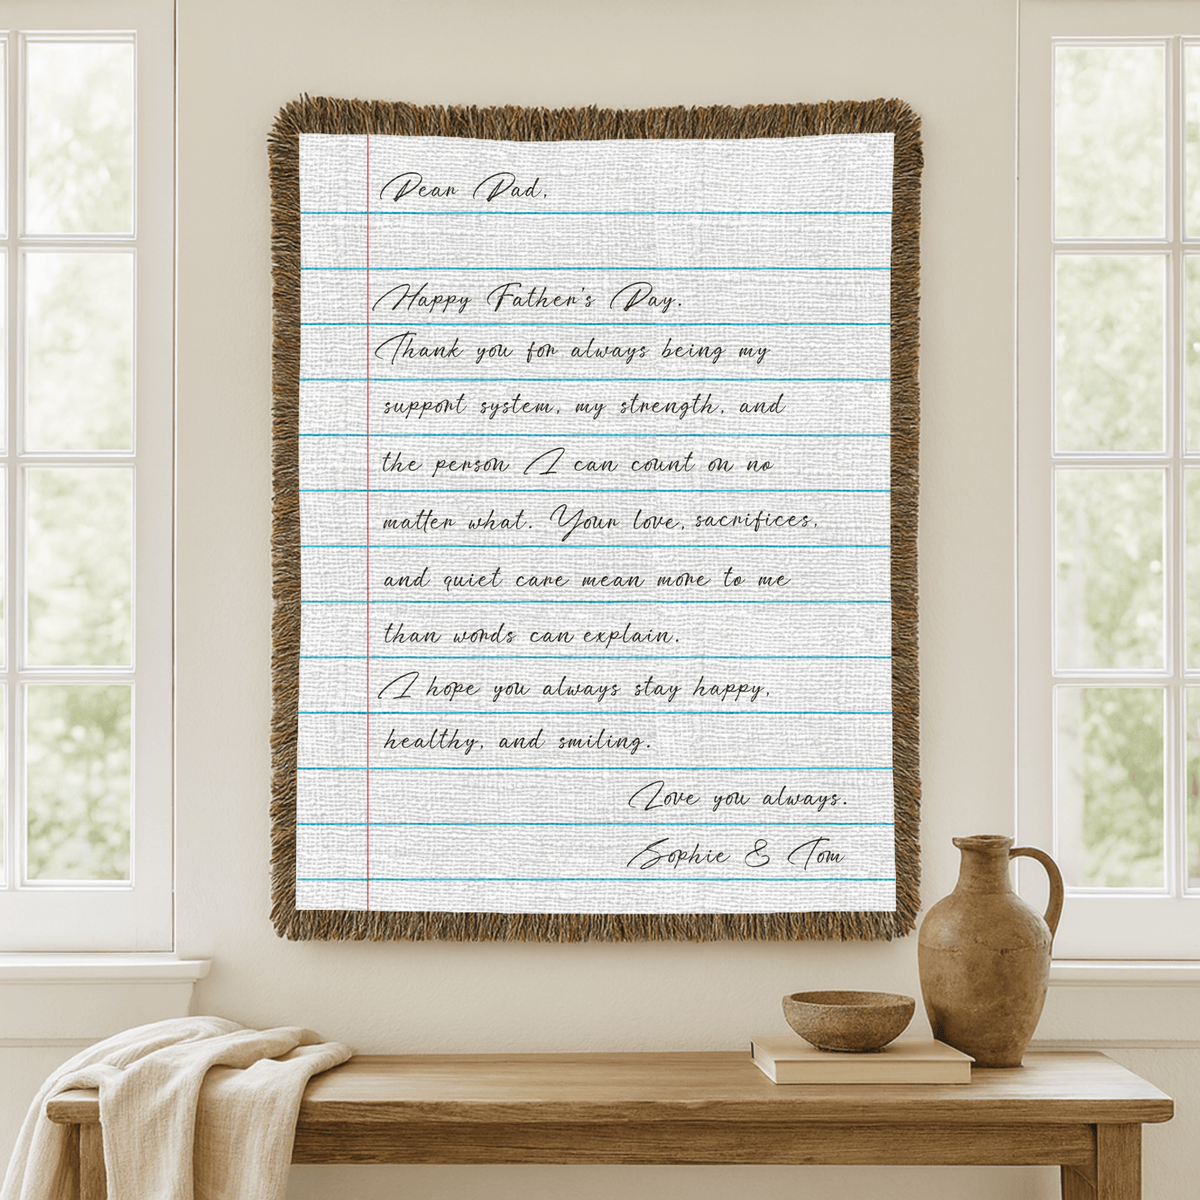 Dear Dad,
Happy Father's Day.
Thank you for always being my
support system, my strength, and
the person I can count on no
matter what. Your love, sacrifices,
and quiet care mean more to me
than words can explain.
I hope you always stay happy,
healthy, and smiling.
Love you always.
Sophie & Tom